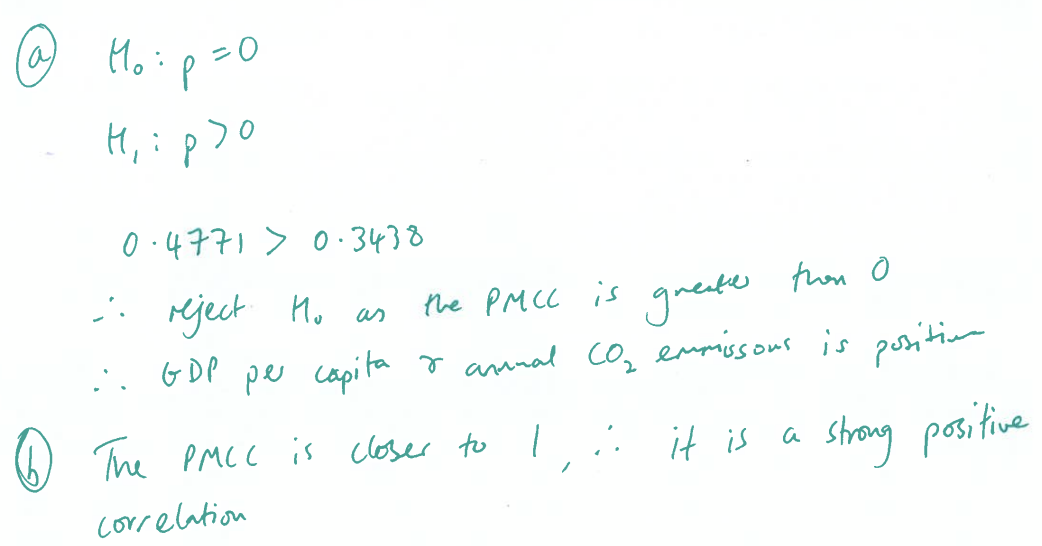 (a) H₀: p = 0
H₁: p > 0
0.4771 > 0.3438
∴ reject H₀ as the PMCC is greater than 0
∴ GDP per capita & annual CO₂ emmissons is positive
(b) The PMCC is closer to 1, ∴ it is a strong positive
correlation